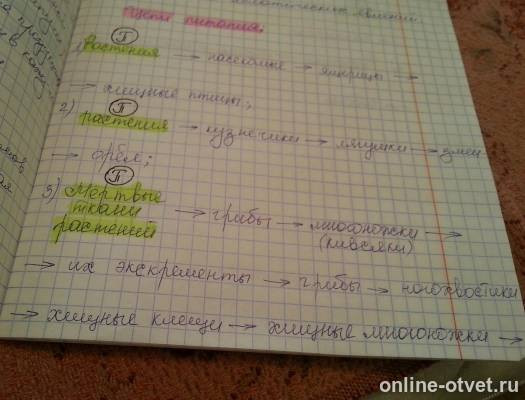 Цепи питания.
П
1) Растения → насекомые → ящерицы →
→ хищные птицы;
П
2) растения → кузнечики → лягушки → змеи
→ орёл;
П
3) Мёртвые
ткани
растений → грибы → многоножки →
(кивсяки)
→ их экскременты → грибы → ногохвостики
→ хищные клещи → хищные многоножки →
online-otvet.ru